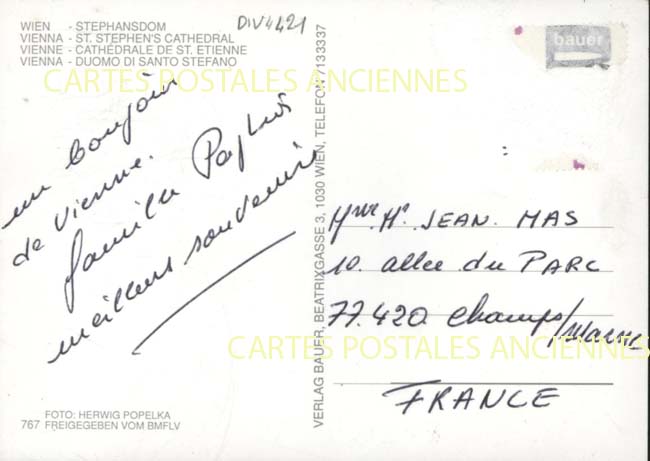 WIEN - STEPHANSDOM
VIENNA - ST. STEPHEN'S CATHEDRAL
VIENNE - CATHÉDRALE DE ST. ETIENNE
VIENNA - DUOMO DI SANTO STEFANO
DIV4421
bauer
CARTES POSTALES ANCIENNES
un bonjour
de Vienne.
famille
meilleurs souvenirs
VERLAG BAUER, BEATRIXGASSE 3, 1030 WIEN, TELEFON 7133337
Mme Mr JEAN MAS
10. allee du PARC
77.420 Champs/Marne
CARTES POSTALES ANCIENNES
FRANCE
FOTO: HERWIG POPELKA
767 FREIGEGEBEN VOM BMFLV